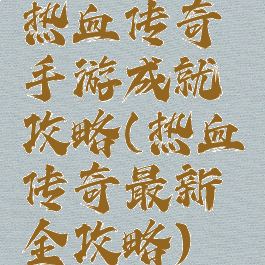 热血传奇
手游成就
攻略(热血
传奇最新
全攻略)